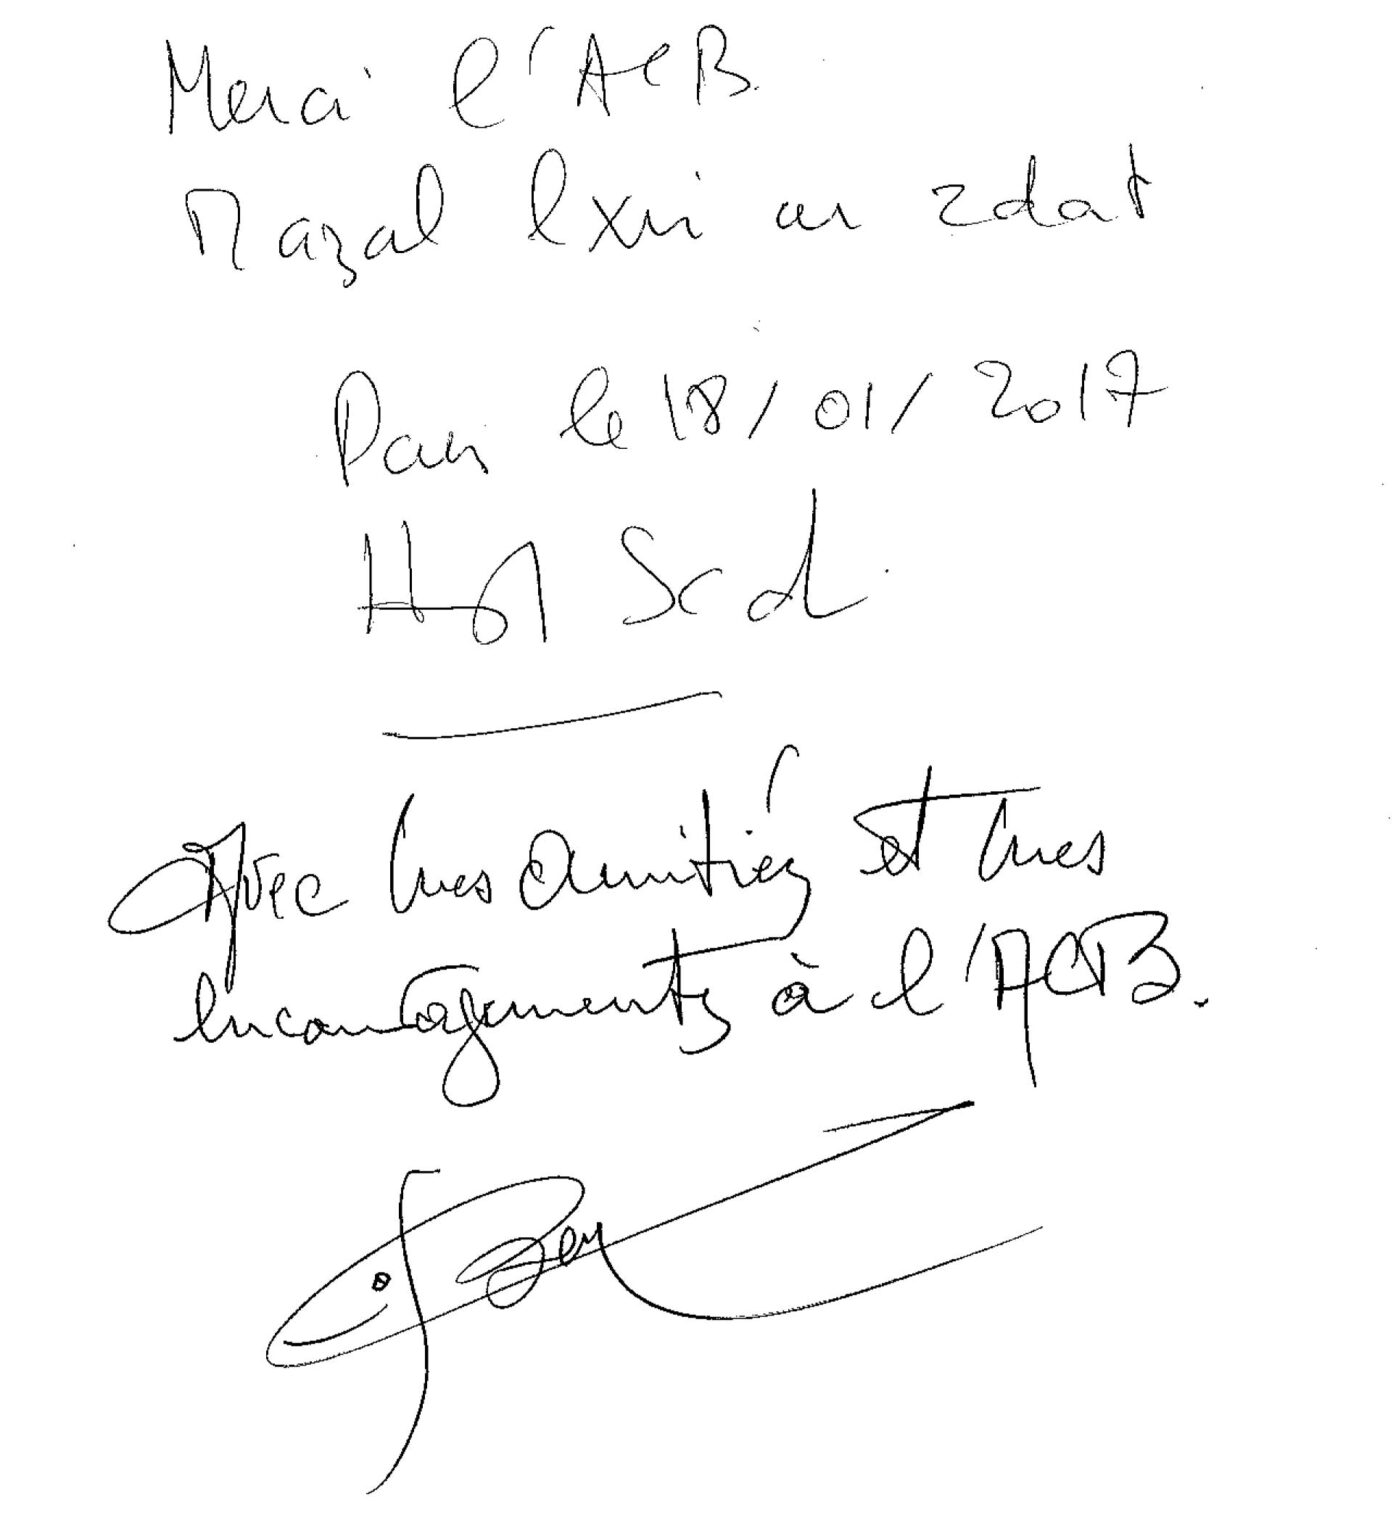 Merci l'ACB.
Mazal lxir ar zdat
Paris le 18/01/2017
Sadi
Avec mes amitiés et mes
encouragements à l'ACB.